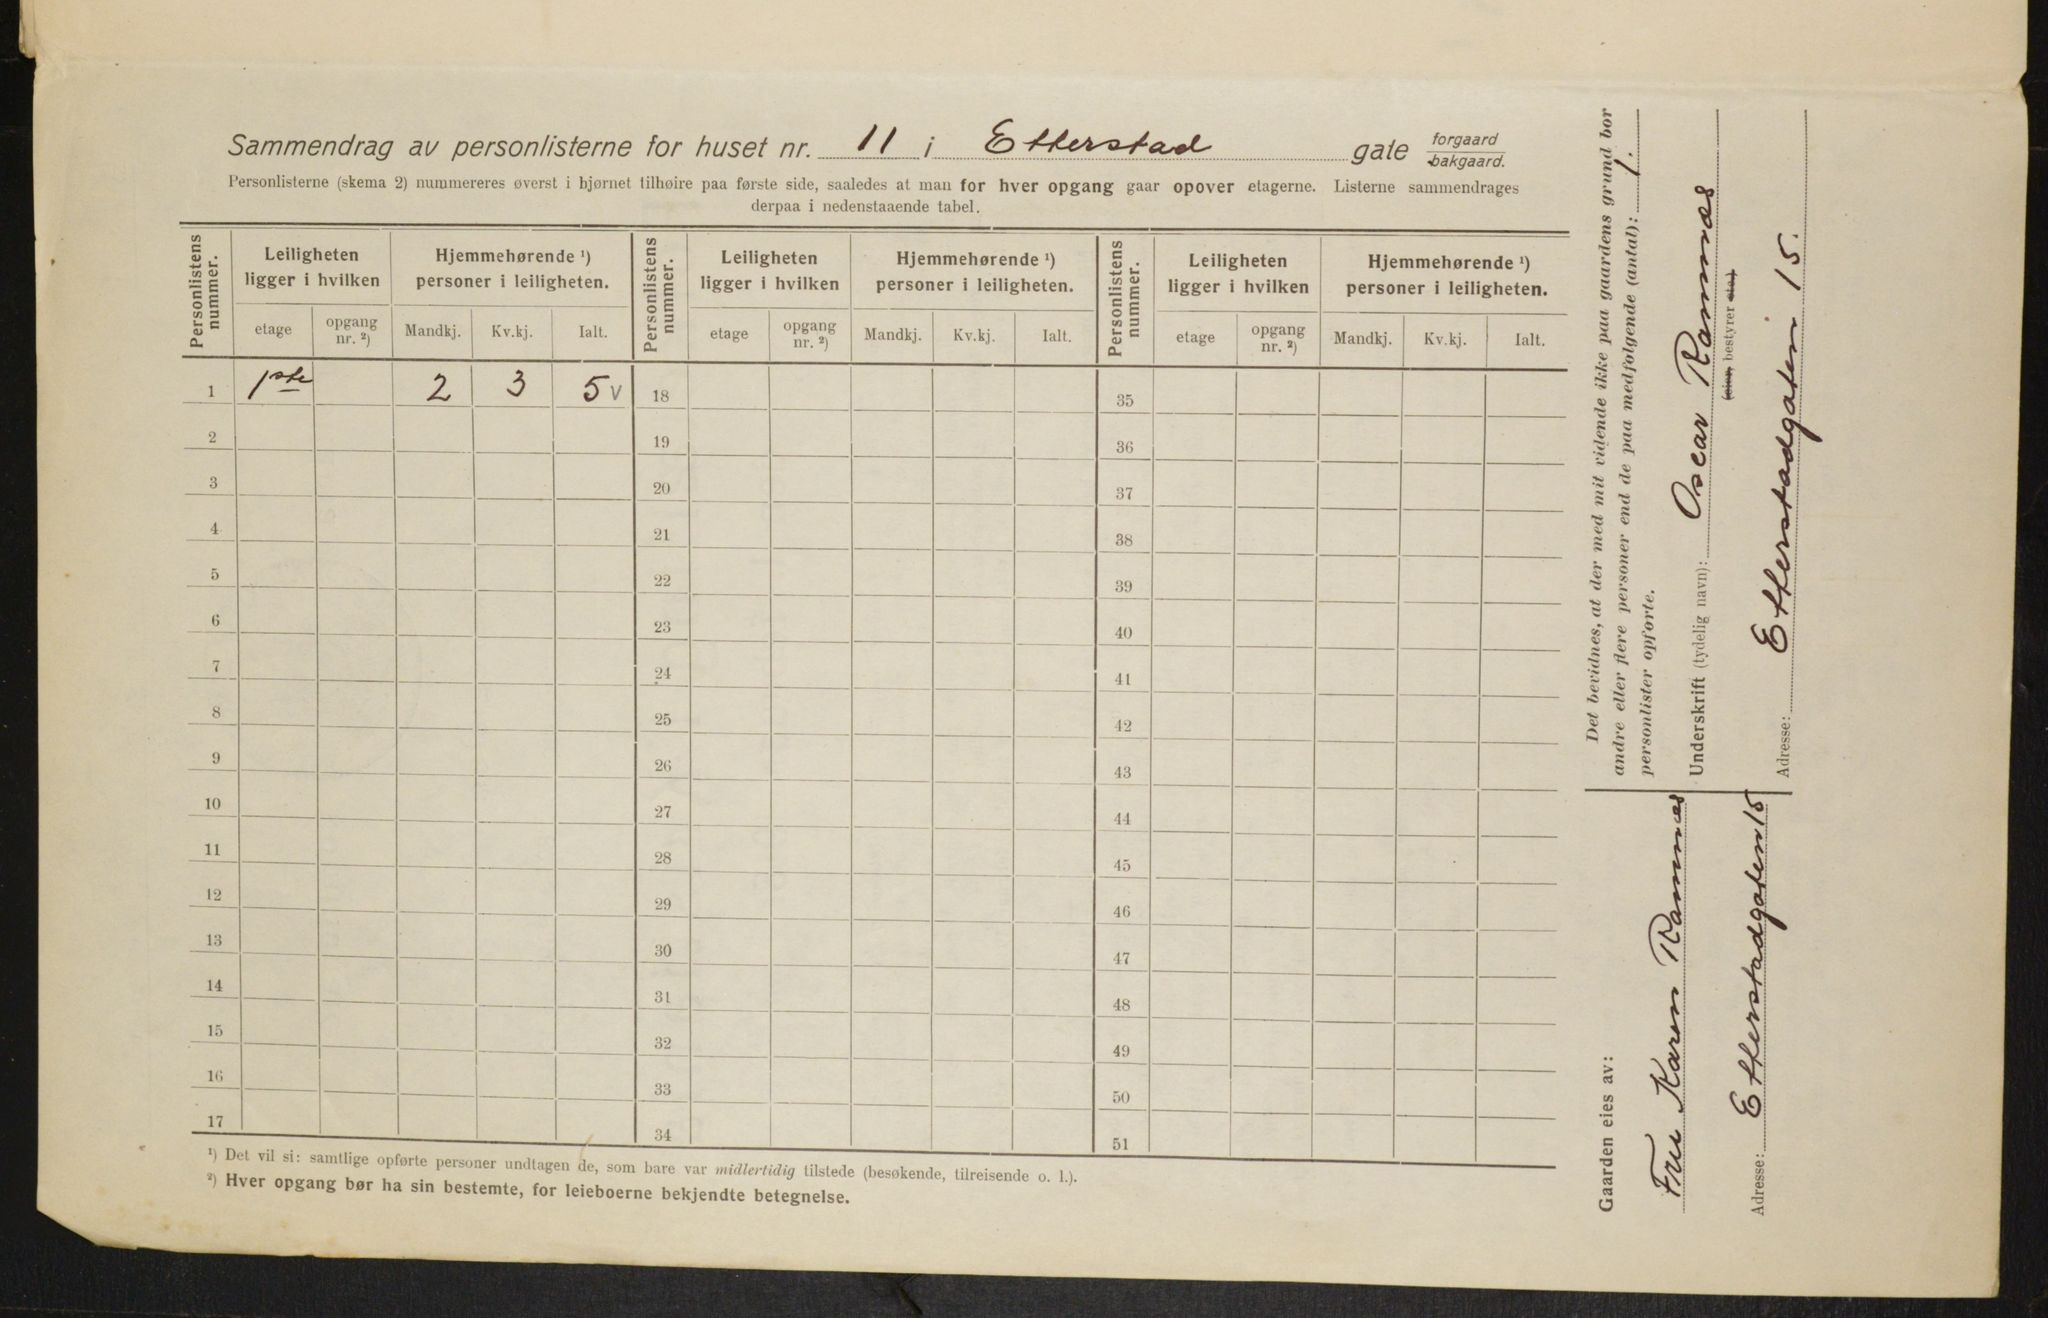 Sammendrag av personlisterne for huset nr. 11 i Etterstad gate forgaard
bakgaard.
Personlisterne (skema 2) nummereres øverst i hjørnet tilhøire paa første side, saaledes at man for hver opgang gaar opover etagerne. Listerne sammendrages
derpaa i nedenstaaende tabel.
Personlistens nummer. Leiligheten ligger i hvilken Hjemmehørende ¹) personer i leiligheten. Personlistens nummer. Leiligheten ligger i hvilken Hjemmehørende ¹) personer i leiligheten. Personlistens nummer. Leiligheten ligger i hvilken Hjemmehørende ¹) personer i leiligheten.
etage opgang nr. ²) Mandkj. Kv.kj. Ialt. etage opgang nr. ²) Mandkj. Kv.kj. Ialt. etage opgang nr. ²) Mandkj. Kv.kj. Ialt.
1 1ste 2 3 5 v 18 35
2 19 36
3 20 37
4 21 38
5 22 39
6 23 40
7 24 41
8 25 42
9 26 43
10 27 44
11 28 45
12 29 46
13 30 47
14 31 48
15 32 49
16 33 50
17 34 51
¹) Det vil si: samtlige opførte personer undtagen de, som bare var midlertidig tilstede (besøkende, tilreisende o. l.).
²) Hver opgang bør ha sin bestemte, for leieboerne bekjendte betegnelse.
Det bevidnes, at der med mit vidende ikke paa gaardens grund bor
andre eller flere personer end de paa medfølgende (antal): 1.
personlister opførte.
Underskrift (tydelig navn): Oscar Ramnæs
(eier, bestyrer etc.)
Adresse: Etterstadgaten 15.
Gaarden eies av:
Fru Karen Ramnæs
Adresse: Etterstadgaten 15